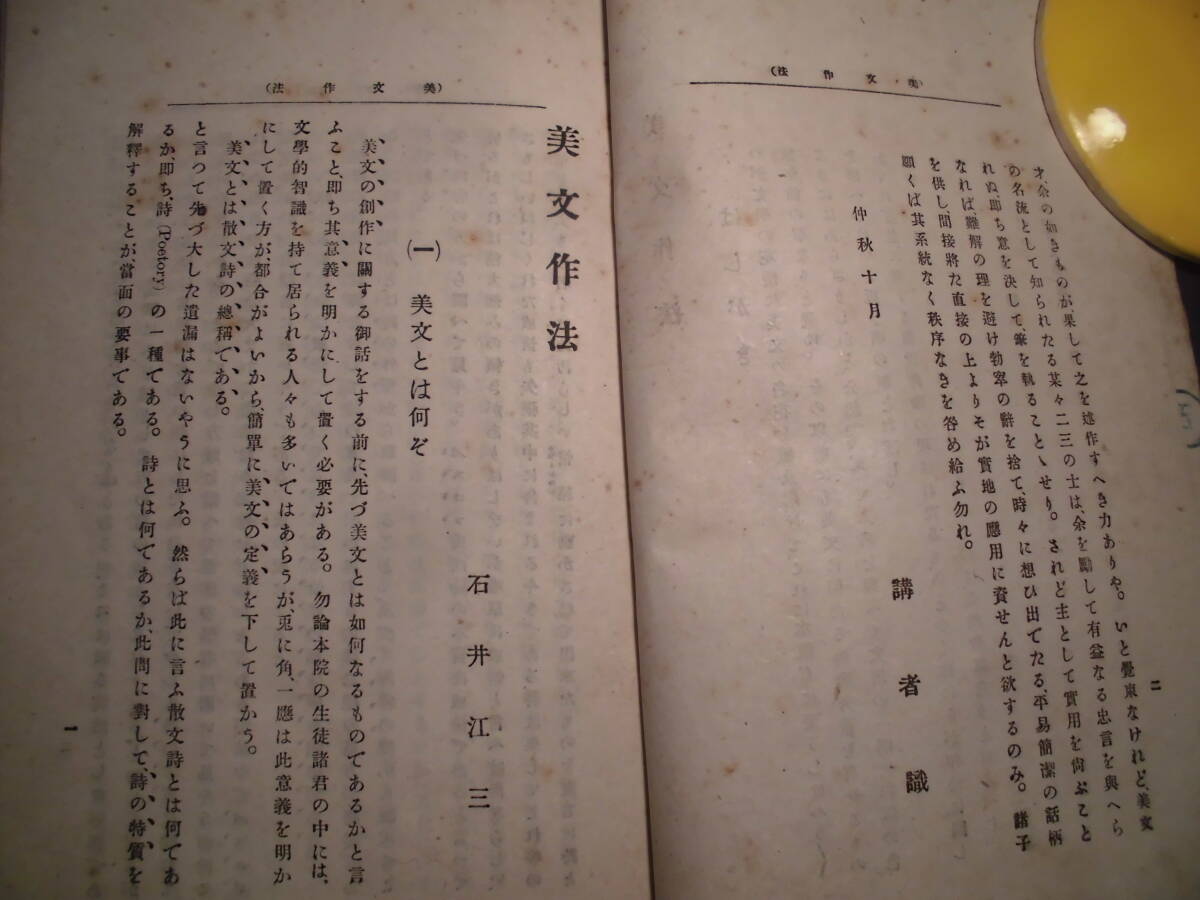 (美文作法)
二
才、余の如きものが、果して之を述作すべき力ありや。いと覺束なけれど、美文
の名流として知られたる某々二三の士は、余を勵して有益なる忠言を與へら
れぬ、即ち意を決して、筆を執ることゝせり。されど主として實用を尙ぶこと
なれば、難解の理を避け勃窣の辭を捨て、時々に想ひ出でたる、平易簡潔の話柄
を供し、間接將た直接の上よりそが實地の應用に資せんと欲するのみ。諸子
願くば其系統なく秩序なきを咎め給ふ勿れ。
仲秋十月
講者識
(美文作法)
美文作法
石井江三
(一) 美文とは何ぞ
美文の創作に關する御話をする前に、先づ美文とは如何なるものであるかと言
ふこと、即ち其意義を明かにして置く必要がある。勿論本院の生徒諸君の中には、
文學的智識を持て居られる人々も多いではあらうが、兎に角、一應は此意義を明か
にして置く方が、都合がよいから、簡單に美文の定義を下して置かう。
美文とは散文詩の總稱である。
と言つて先づ大した遺漏はないやうに思ふ。然らば此に言ふ散文詩とは何であ
るか、即ち、詩(Poetory)の一種である。詩とは何であるか、此問に對して、詩の特質を
解釋することが當面の要事である。
一